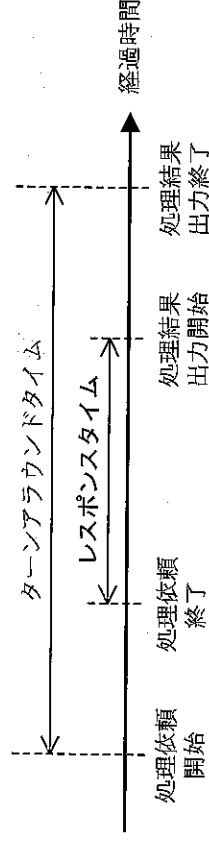 ターンアラウンドタイム
レスポンスタイム
経過時間
処理依頼
開始
処理依頼
終了
処理結果
出力開始
処理結果
出力終了